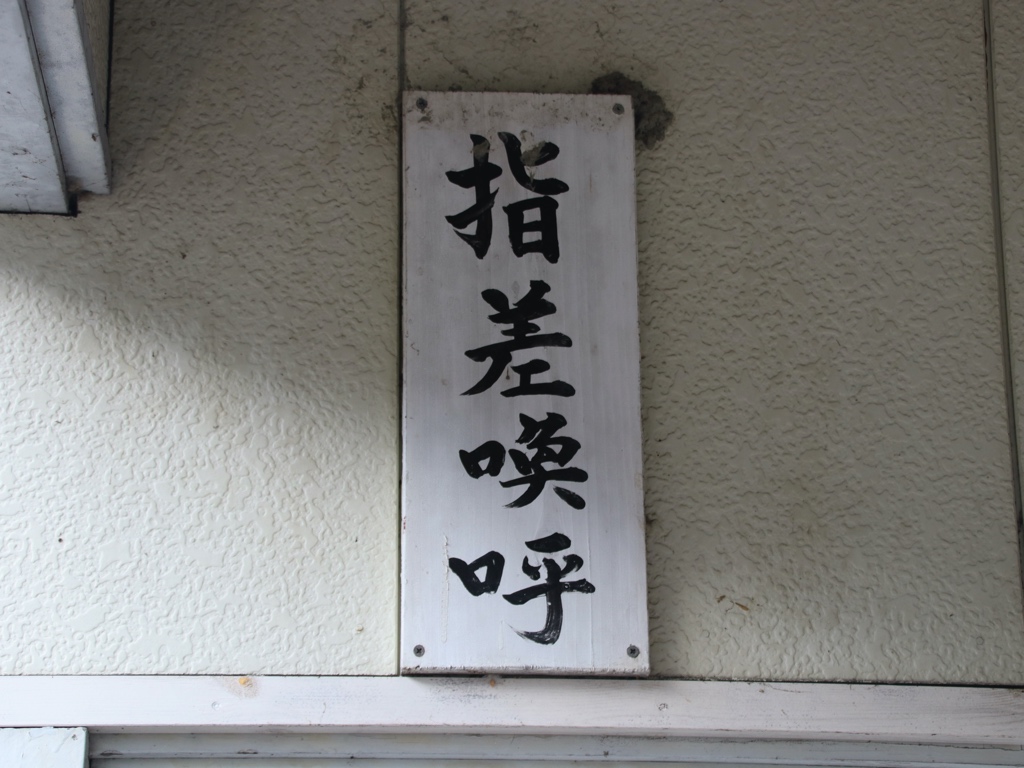 指差喚呼